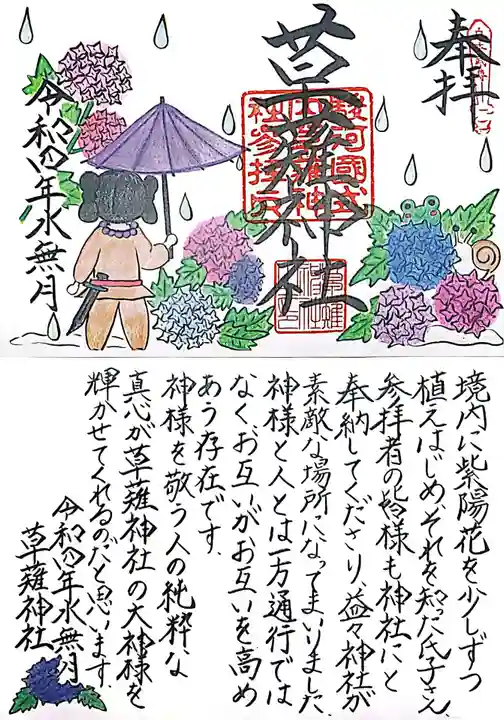 奉拝
草薙神社
令和四年水無月
境内に紫陽花を少しずつ
植えはじめ、それを知った氏子さん
参拝者の皆様も神社にと
奉納してくださり、益々神社が
素敵な場所になってまいりました
神様と人とは一方通行では
なく、お互いがお互いを高め
あう存在です。
神様を敬う人の純粋な
真心が草薙神社の大神様を
輝かせてくれるのだと思います。
令和四年水無月
草薙神社